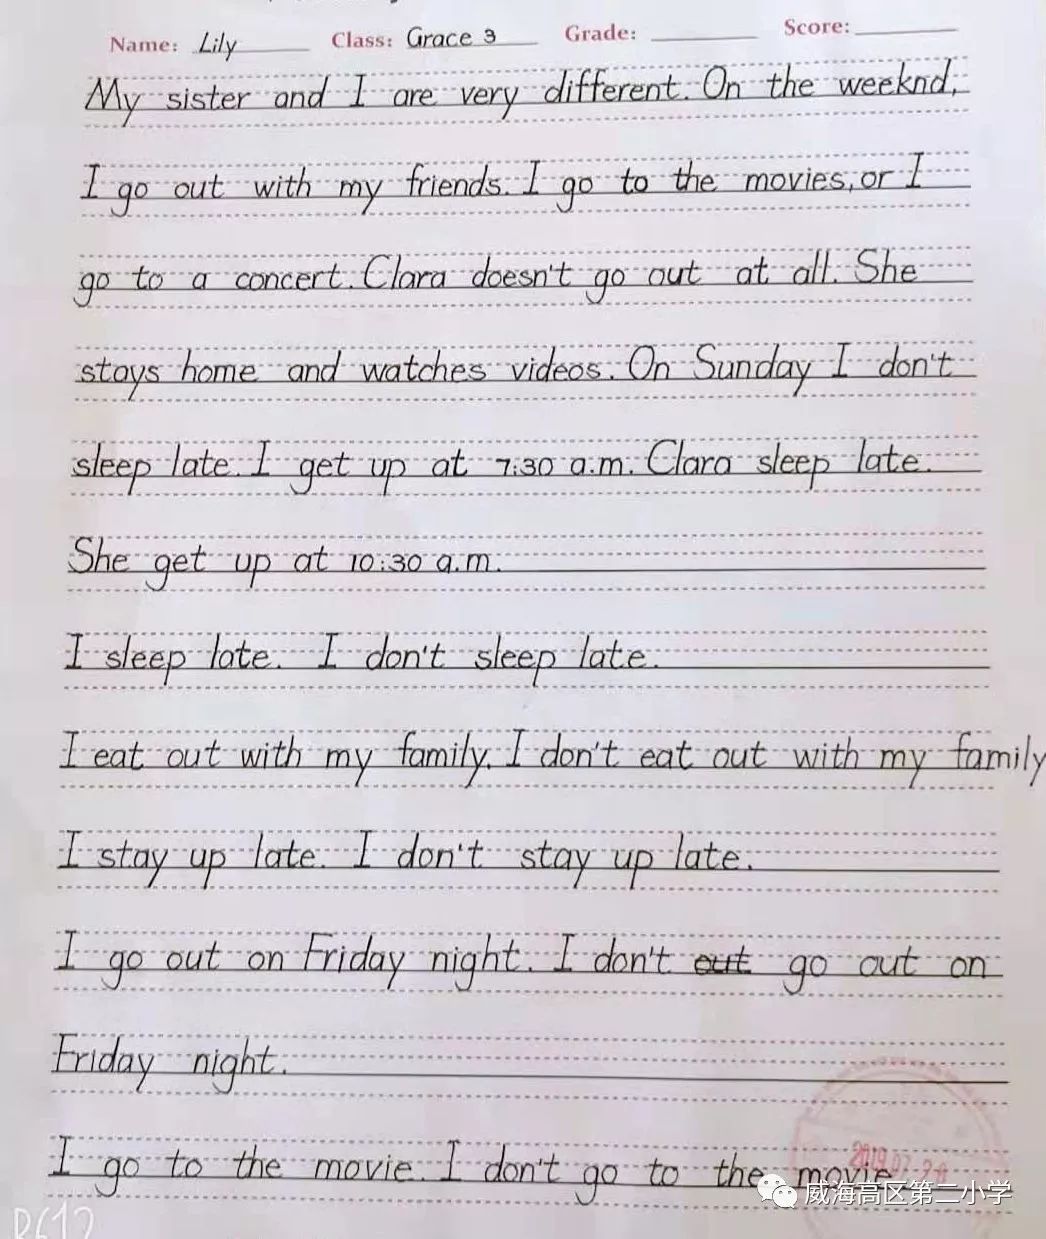 Name: Lily Class: Grace 3 Grade: Score:
My sister and I are very different. On the weeknd,
I go out with my friends. I go to the movies, or I
go to a concert. Clara doesn't go out at all. She
stays home and watches videos. On Sunday I don't
sleep late. I get up at 7:30 a.m. Clara sleep late.
She get up at 10:30 a.m.
I sleep late. I don't sleep late.
I eat out with my family. I don't eat out with my family
I stay up late. I don't stay up late.
I go out on Friday night. I don't out go out on
Friday night.
I go to the movie. I don't go to the movie
威海高区第二小学
R612